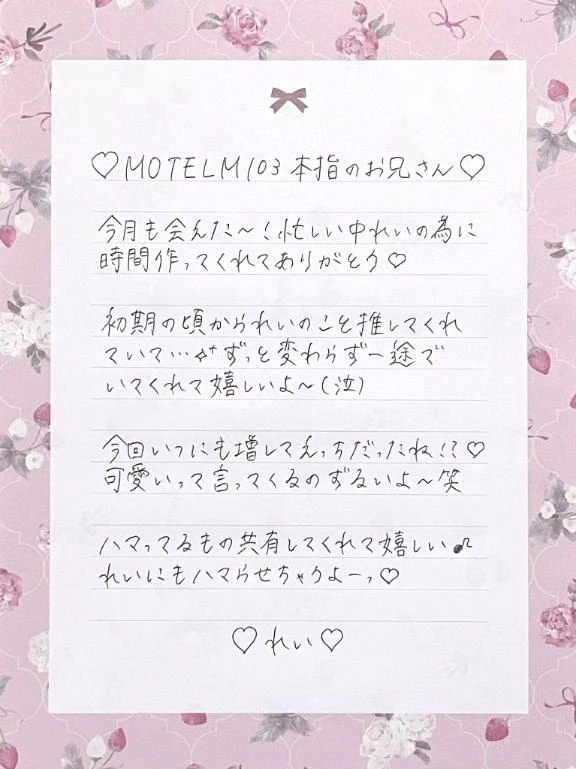 ♡MOTELM103本指のお兄さん♡
今月も会えた〜！忙しい中れいの為に
時間作ってくれてありがとう♡
初期の頃かられいのこと推してくれ
ていて…✧⁺ずっと変わらず一途で
いてくれて嬉しいよ〜(泣)
今回いつにも増してえっちだったね！？♡
可愛いって言ってくるのずるいよ〜笑
ハマってるもの共有してくれて嬉しい♪
れいにもハマらせちゃうよーっ♡
♡れい♡